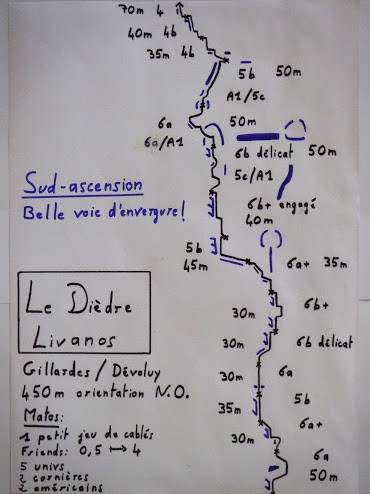 70m 4
40m 4b
35m 4b
5b 50m
A1/5c
6a 50m
6a/A1
6b délicat 50m
5c/A1
Sud-ascension
Belle voie d'envergure!
6b+ engagé
40m
5b
45m
6a+ 35m
Le Dièdre
Livanos
30m 6b+
30m 6b délicat
Gillardes / Dévoluy
30m 6a
450m orientation N.O.
5b
Matos:
35m
6a+
1 petit jeu de cablés
30m
Friends: 0,5 ↦ 4
6a
5 univs
50m
2 cornières
2 américains